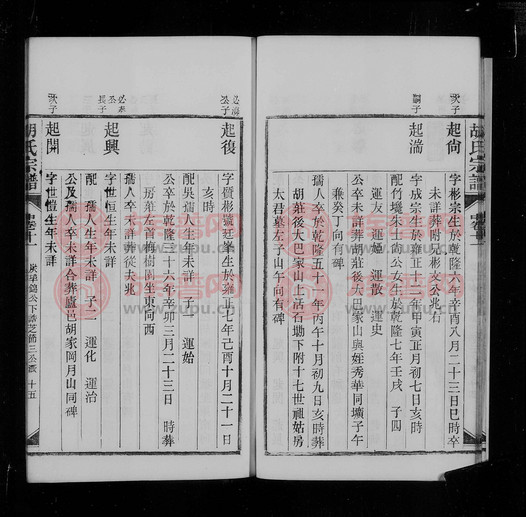 胡氏宗譜
次子
起尙
字彬宗生於乾隆六年辛亥八月二十三日巳時卒
未詳葬附兄彬文公兆右
嗣子
起湍
字成宗生於雍正十二年甲寅正月初七日亥時
配竹堤朱士尚公女生於乾隆七年壬戌 子四
運友 運姬 運散 運史
公卒未詳葬胡莊後大巴家山與姪秀華同壙子午
兼癸丁向有碑
孺人卒於乾隆五十一年丙午十月初九日亥時葬
胡莊後大巴家山上活石塝下附十七世禩姑房
太君墓左子山午向有碑
公子
起復
字質彬號廷拏生於雍正七年己酉十月二十一日
亥時
配吳孺人生年未詳 子一 運始
公卒於乾隆三十六年辛卯三月二十三日 時葬
房莊左首梅樹園坐東向西
孺人卒未詳葬從夫兆
長子
起興
字世恒生年未詳
配 孺人生年未詳 子二 運化 運治
公及孺人卒未詳合葬廬邑胡家岡月山同碑
次子
起開
字世愷生年未詳
胡氏宗譜
十五